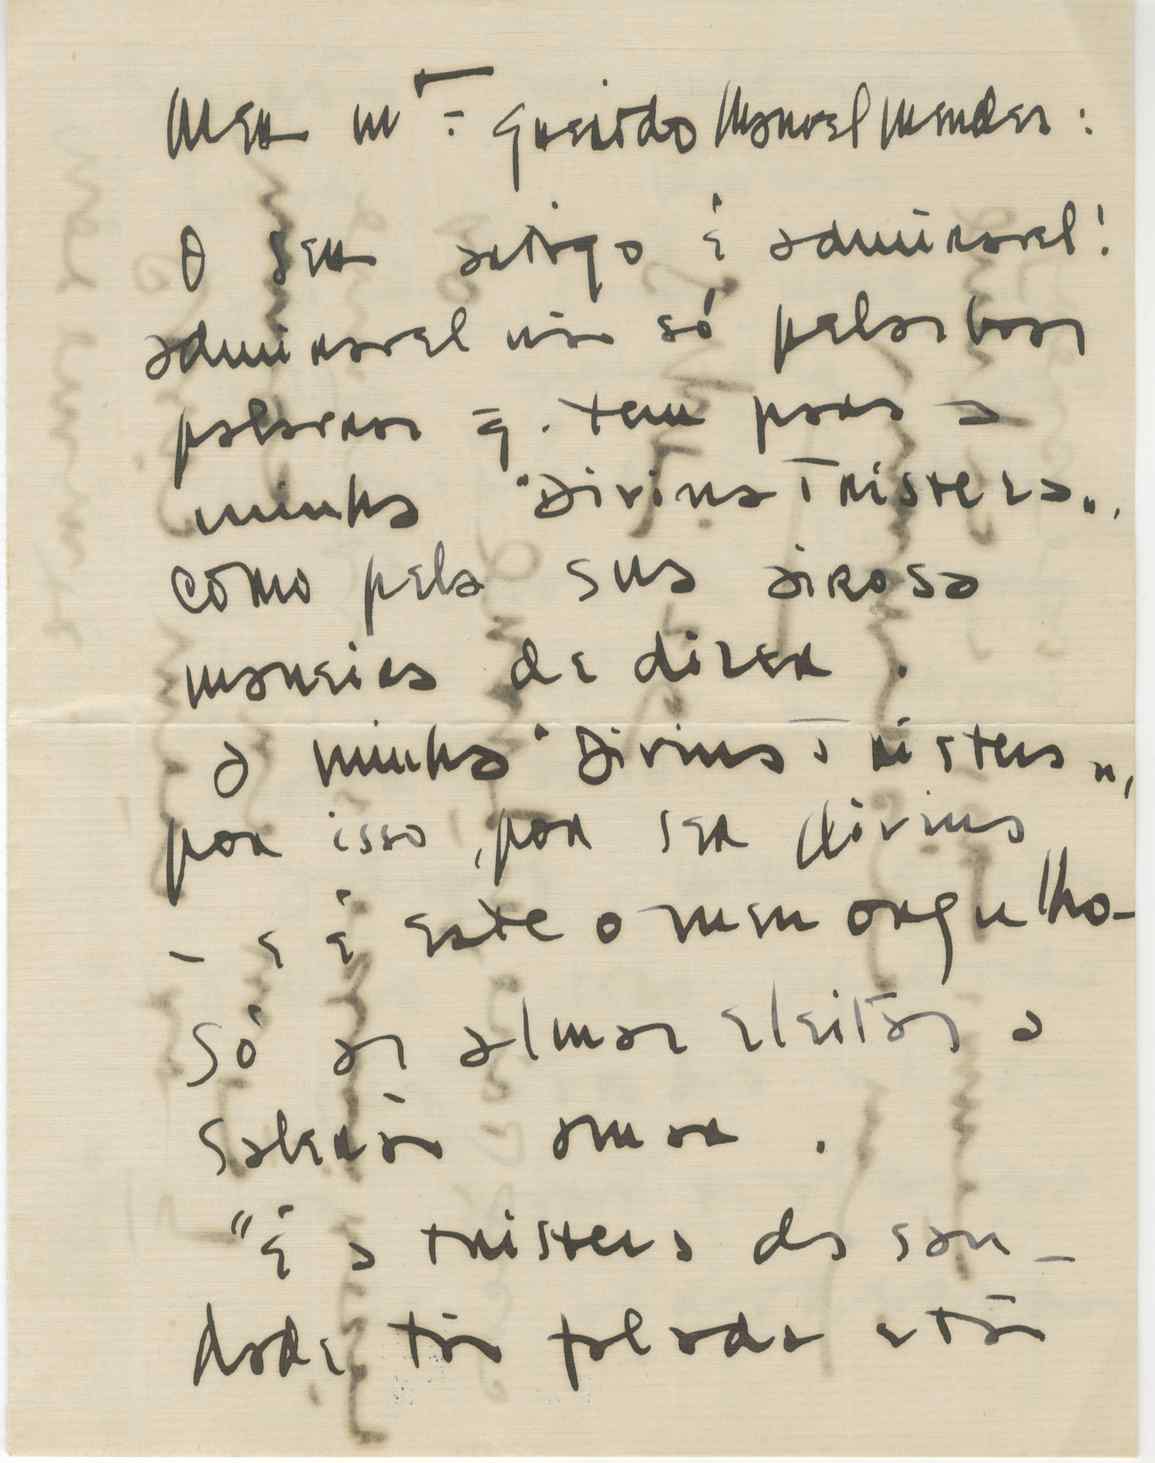 Meu mto querido Manuel Mendes:
O seu artigo é admiravel!
admiravel não só pelas boas
palavras q. tem para a
minha "Divina Tristeza",
como pela sua airosa
maneira de dizer.
A minha "Divina Tristeza",
por isso, por ser divina
– e é este o meu orgulho –
só as almas eleitas a
saberão amar.
"É a tristeza da sau-
dade tão falada e tão